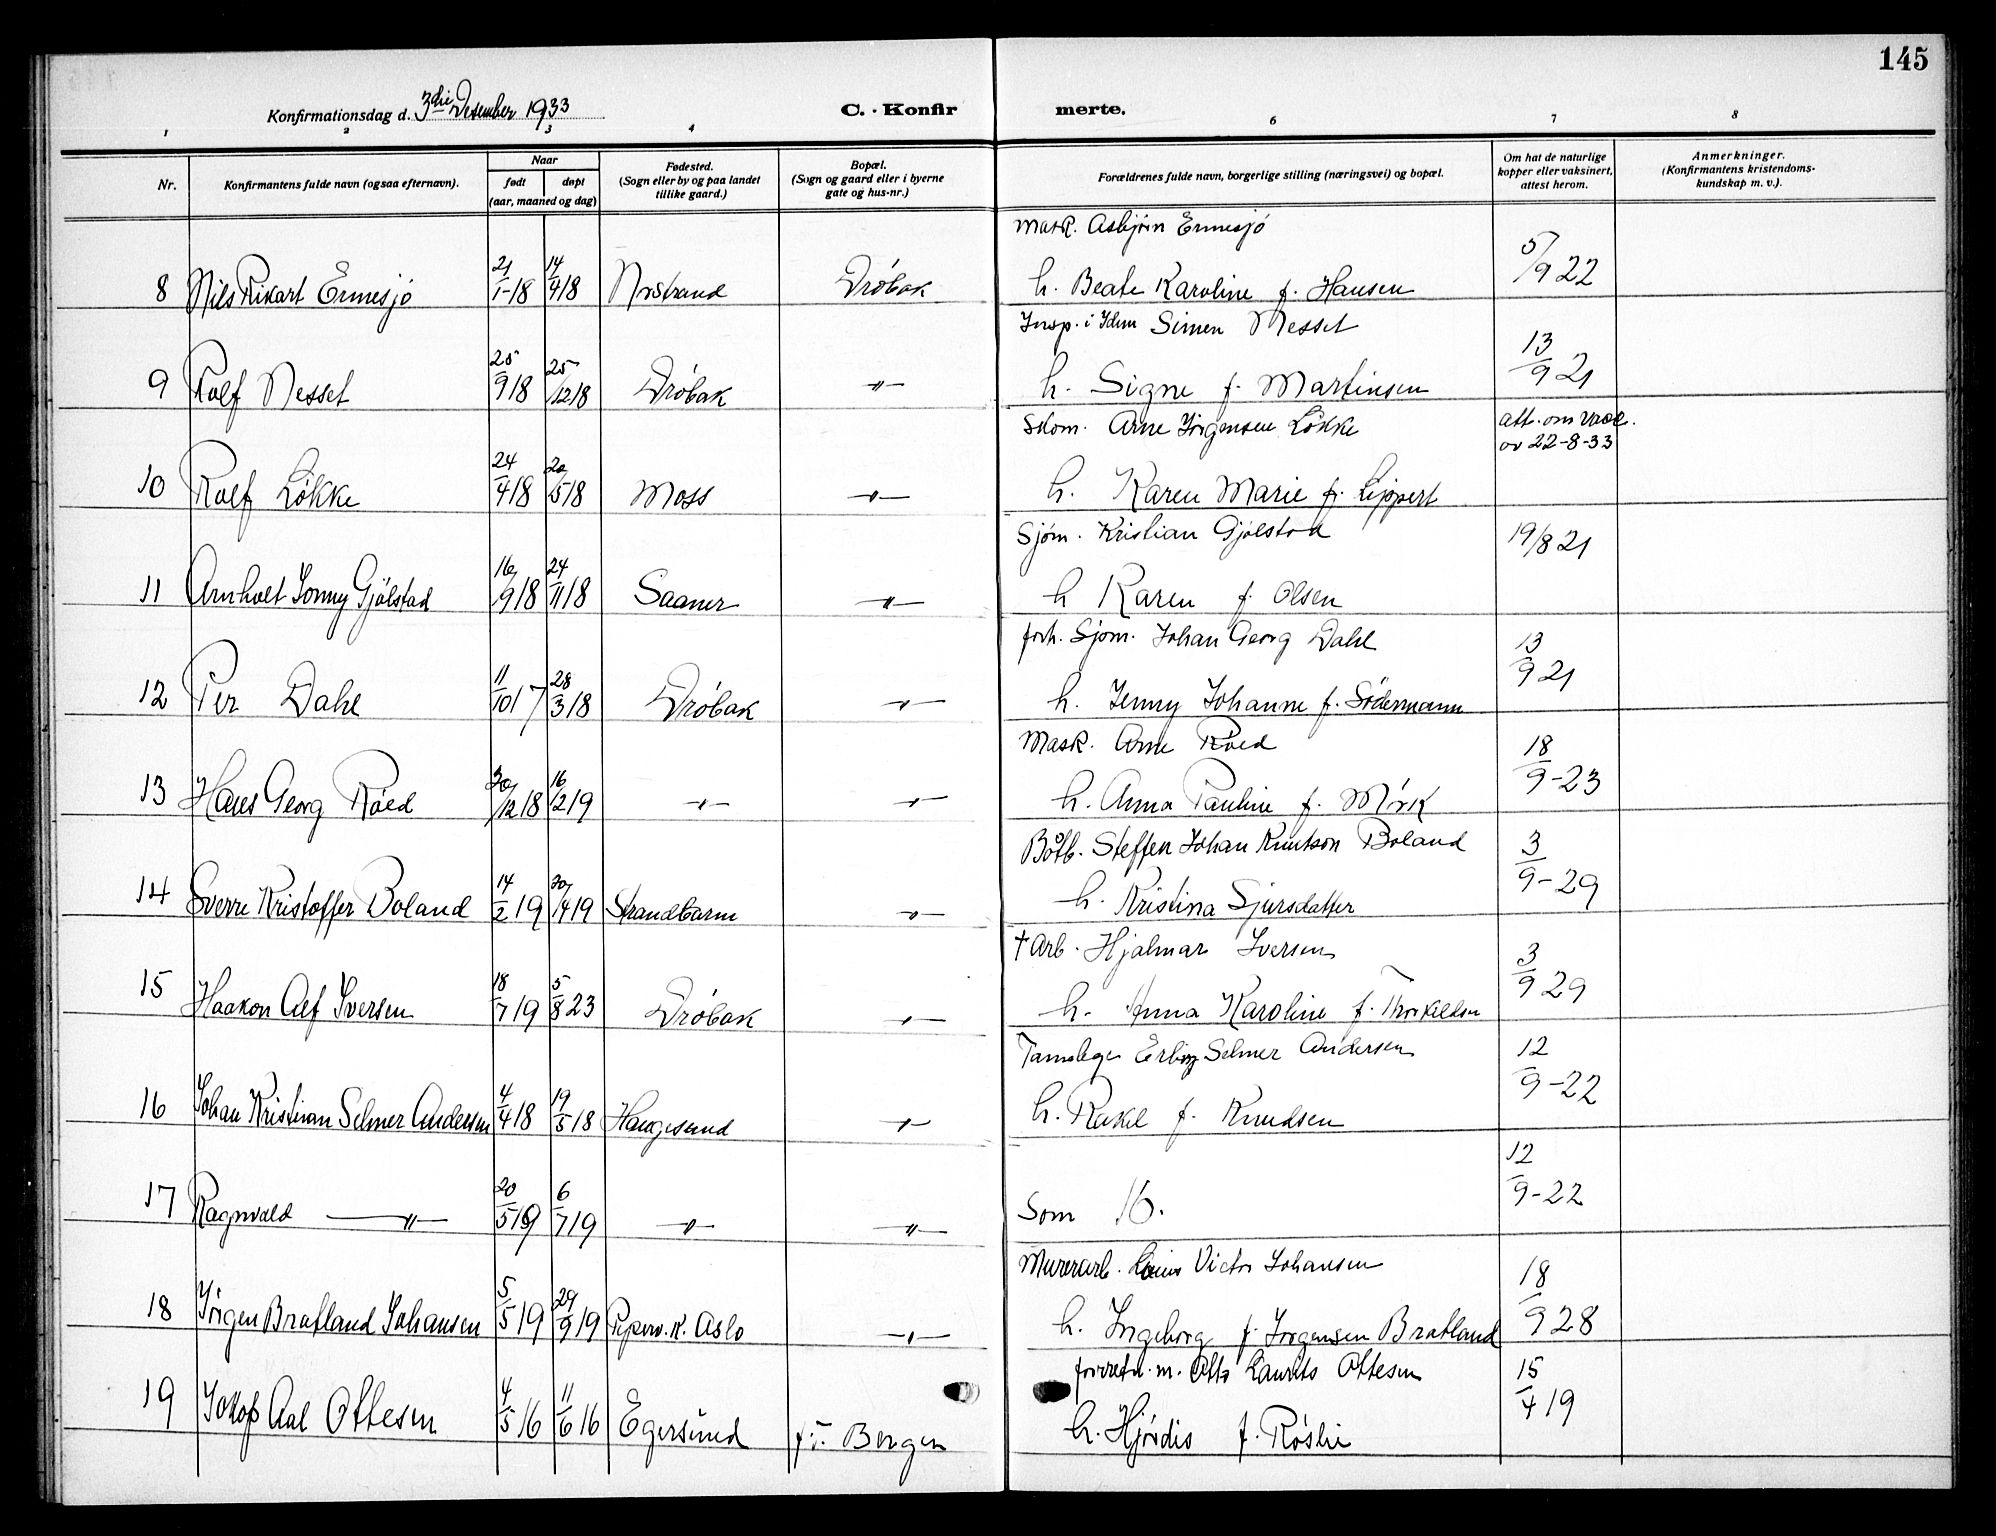 145
Konfirmationsdag d. 3die Desember 1933
C. · Konfirmerte.
1 2 3 4 6 7 8
Nr.
Konfirmantens fulde navn (ogsaa efternavn).
Naar
født døpt
(aar, maaned og dag)
Fødested.
(Sogn eller by og paa landet
tillike gaard.)
Bopæl.
(Sogn og gaard eller i byerne
gate og hus-nr.)
Forældrenes fulde navn, borgerlige stilling (næringsvei) og bopæl.
Om hat de naturlige
kopper eller vaksinert,
attest herom.
Anmerkninger.
(Konfirmantens kristendoms-
kundskap m. v.).
Mask. Asbjørn Ermesjø
8 Nils Rikart Ermesjø 21/1-18 14/4 18 Nrstrand Drøbak h. Beate Karoline f. Hansen 5/9 22
Insp. i Idun Simen Nesset
9 Rolf Nesset 25/9 18 25/12 18 Drøbak -"- h. Signe f. Martinsen 13/9 21
Skom. Arne Jørgensen Løkke att. om vacc.
ov 22-8-33
10 Rolf Løkke 24/4 18 20/5 18 Moss -"- h. Karen Marie f. Lippert
Sjøm. Kristian Gjølstad 19/8 21
11 Arnholt Sonny Gjølstad 16/9 18 24/11 18 Saaner -"- h Karen f. Olsen
forh. Sjøm. Johan Georg Dahl
12 Per Dahl 11/10 17 28/3 18 Drøbak -"- h. Jenny Johanne f. Södermann 13/9 21
Mask. Arne Røed
13 Hans Georg Røed 30/12 18 16/2 19 -"- -"- h. Anna Pauline f. Mørk 18/9-23
Båtb. Steffen Johan Knutson Boland
14 Sverre Kristoffer Boland 14/2 19 20/4 19 Strandbarm -"- h. Kristina Sjursdatter 3/9-29
† Arb. Hjalmar Iversen
15 Haakon Alf Iversen 18/7 19 5/8 23 Drøbak -"- h. Anna Karoline f. Thorkildsen 3/9 29
Tannlege Erling Selmer Andersen
16 Johan Kristian Selmer Andersen 4/4 18 19/5 18 Haugesund -"- h. Rakel f. Knudsen 12/9-22
17 Ragnvald -"- 20/5 19 6/7 19 -"- -"- Som 16. 12/9-22
Murerarb. Louis Victor Johansen
18 Jörgen Bratland Johansen 5/5 19 29/9 19 Piperv. K. Oslo -"- h. Ingeborg f. Jorgensen Bratland 18/9 28
forretn. m. Otto Laurits Ottesen
19 Jakob Aal Ottesen 4/5 16 11/6 16 Egersund f.T. Bergen h. Hjørdis f. Røslie 15/4 19